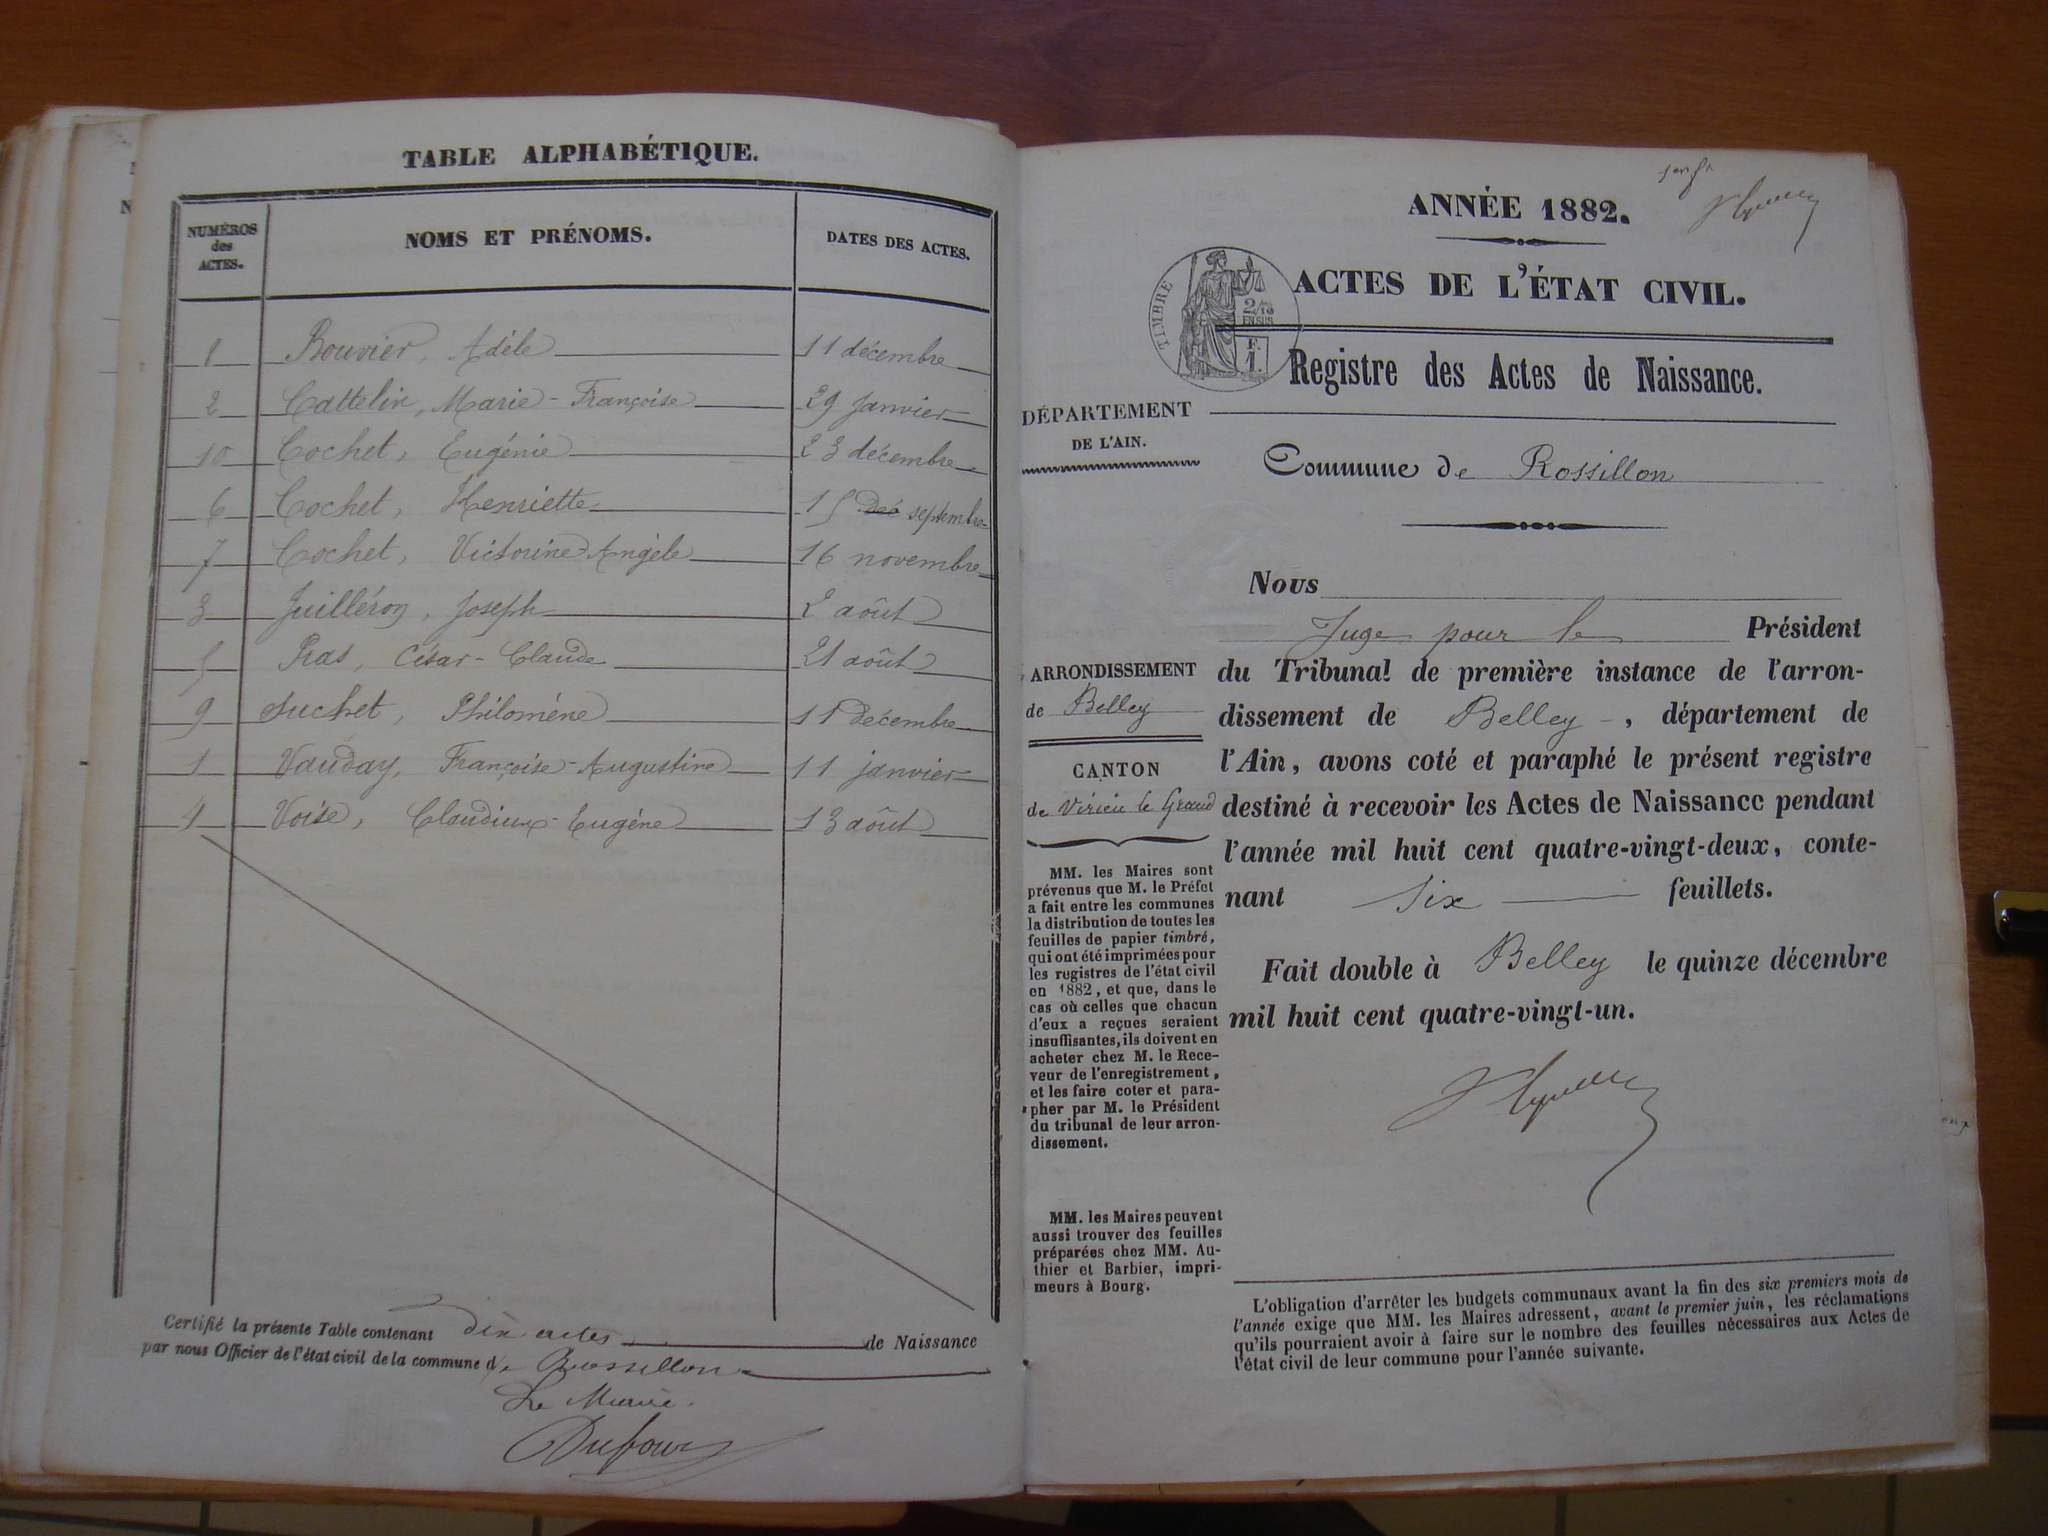 TABLE ALPHABÉTIQUE.
NUMÉROS
des
ACTES.
NOMS ET PRÉNOMS.
DATES DES ACTES.
8 Bouvier, Adèle 11 décembre
2 Cattelin, Marie-Françoise 29 janvier
10 Cochet, Eugénie 23 décembre
6 Cochet, Henriette 15 Déc septembre
7 Cochet, Victorine Angèle 16 novembre
3 Juilléron, Joseph 2 août
5 Pras, César-Claude 21 août
9 Suchet, Philomène 11 Décembre
1 Vauday, Françoise-Augustine 11 janvier
4 Voise, Claudius-Eugène 13 août
Certifié la présente Table contenant dix actes de Naissance
par nous Officier de l'état civil de la commune de Rossillon
Le Maire.
Dufour
ANNÉE 1882.
ACTES DE L'ÉTAT CIVIL.
TIMBRE
2/10
EN SUS
F.
1.
Registre des Actes de Naissance.
DÉPARTEMENT
DE L'AIN.
Commune de Rossillon
Nous
Juge pour le Président
du Tribunal de première instance de l'arron-
dissement de Belley, département de
l'Ain, avons coté et paraphé le présent registre
destiné à recevoir les Actes de Naissance pendant
l'année mil huit cent quatre-vingt-deux, conte-
nant six feuillets.
Fait double à Belley le quinze décembre
mil huit cent quatre-vingt-un.
ARRONDISSEMENT
de Belley
CANTON
de Virieu le Grand
MM. les Maires sont
prévenus que M. le Préfet
a fait entre les communes
la distribution de toutes les
feuilles de papier timbré,
qui ont été imprimées pour
les registres de l'état civil
en 1882, et que, dans le
cas où celles que chacun
d'eux a reçues seraient
insuffisantes, ils doivent en
acheter chez M. le Rece-
veur de l'enregistrement,
et les faire coter et para-
pher par M. le Président
du tribunal de leur arron-
dissement.
MM. les Maires peuvent
aussi trouver des feuilles
préparées chez MM. Au-
thier et Barbier, impri-
meurs à Bourg.
L'obligation d'arrêter les budgets communaux avant la fin des six premiers mois de
l'année exige que MM. les Maires adressent, avant le premier juin, les réclamations
qu'ils pourraient avoir à faire sur le nombre des feuilles nécessaires aux Actes de
l'état civil de leur commune pour l'année suivante.